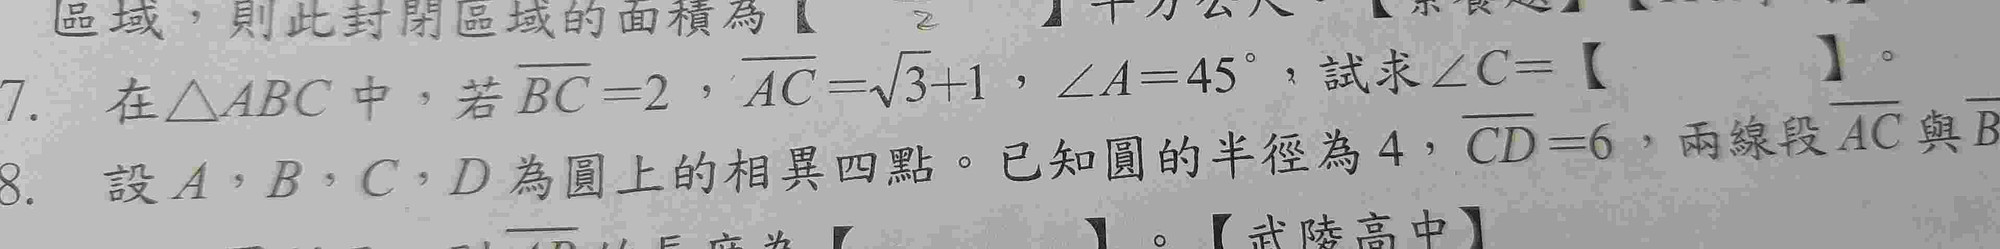 區域，則此封閉區域的面積為【 2 】平方公尺。【素養題】
7. 在△ABC 中，若 \overline{BC}=2，\overline{AC}=√3+1，∠A=45°，試求∠C=【 】。
8. 設 A，B，C，D 為圓上的相異四點。已知圓的半徑為 4，\overline{CD}=6，兩線段 \overline{AC} 與 \overline{B
長度為【 】。【武陵高中】